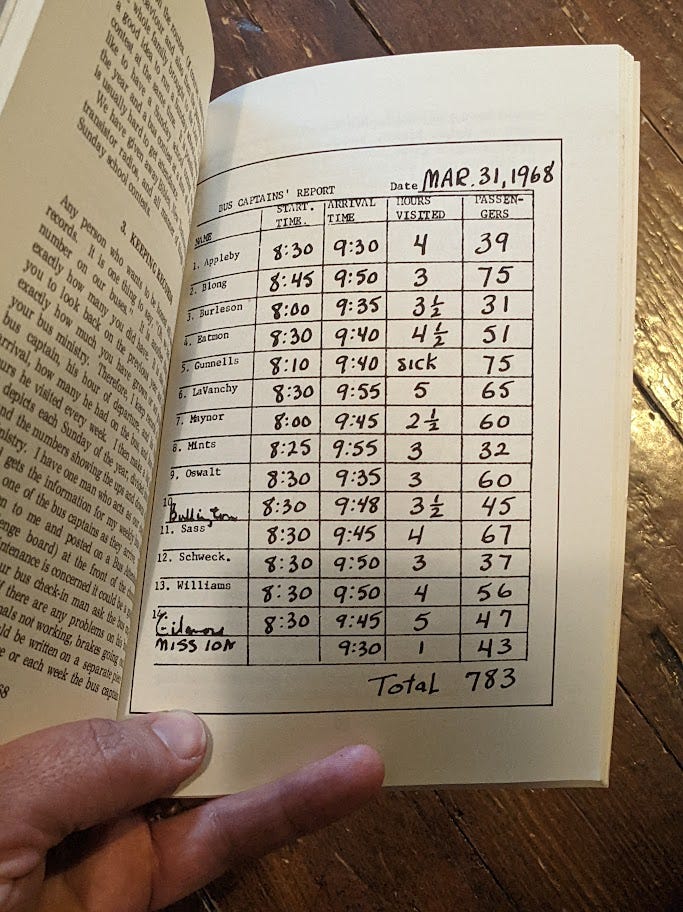 a good idea to
contest at the same time.
like to have a
the year and a bus contest
is usually hard to get
We have given away
transistor radios, and all
Sunday school contest.
3. KEEPING
Any person who wants to be
records. It is one thing to say
number on our buses." It is
exactly how many you did have
you to look back on the previous
exactly how much you have grown
your bus ministry. Therefore, I keep
bus captain, his hour of departure, and
arrival, how many he had on the bus and
hours he visited every week. I then make a
depicts each Sunday of the year,
and the numbers showing the ups and
ministry. I have one man who acts as our
gets the information for my weekly
one of the bus captains as they
to me and posted on a Bus
board) at the front of the
is concerned it could be a
our bus check-in man ask the bus
if there are any problems on his
signals not working, brakes going
be written on a separate
or each week the bus captain
68
BUS CAPTAINS' REPORT Date MAR. 31, 1968
NAME START. TIME. ARRIVAL TIME HOURS VISITED PASSENGERS
1. Appleby 8:30 9:30 4 39
2. Blong 8:45 9:50 3 75
3. Burleson 8:00 9:35 3½ 31
4. Eatmon 8:30 9:40 4½ 51
5. Gunnells 8:10 9:40 sick 75
6. LaVanchy 8:30 9:55 5 65
7. Maynor 8:00 9:45 2½ 60
8. Mints 8:25 9:55 3 32
9. Oswalt 8:30 9:35 3 60
10. Bullington 8:30 9:48 3½ 45
11. Sass 8:30 9:45 4 67
12. Schweck. 8:30 9:50 3 37
13. Williams 8:30 9:50 4 56
14. 8:30 9:45 5 47
MISSION 9:30 1 43
Total 783